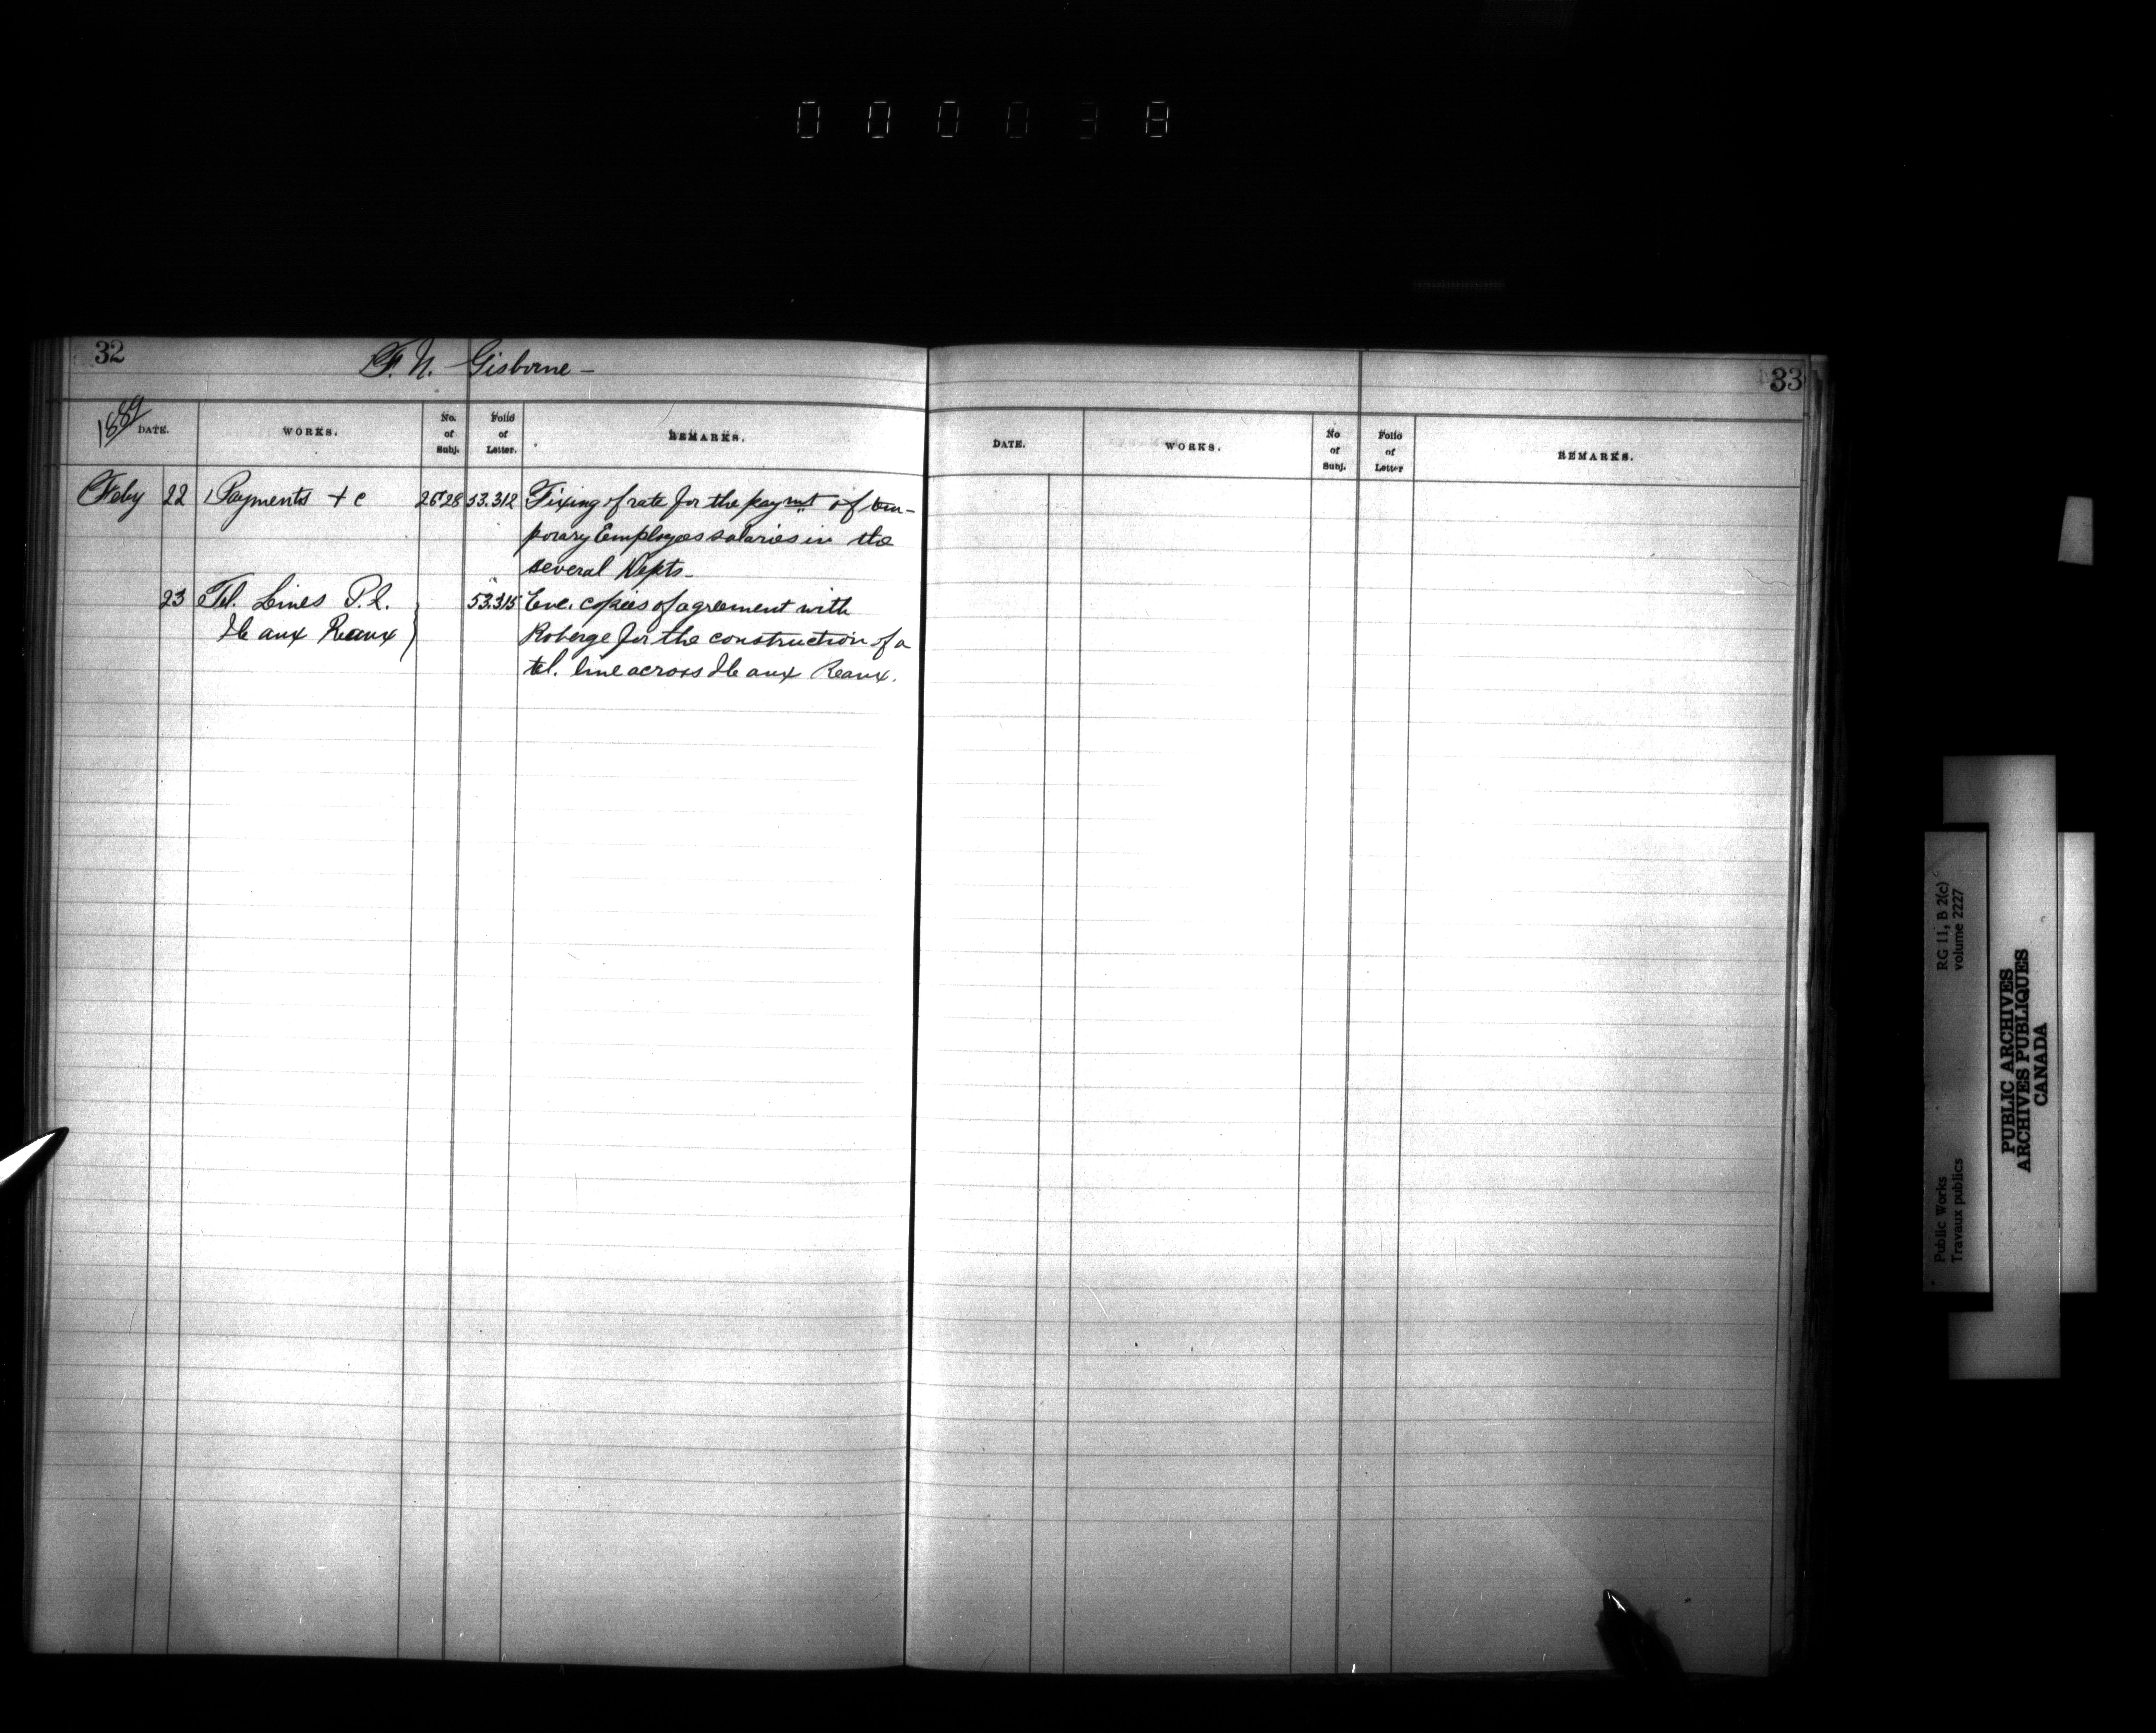 000038
32
F. N. Gisborne -
1889
DATE.
WORKS.
No. of Subj.
Folio of Letter.
REMARKS.
Feby 22 Payments + c 2628 53.312 Fixing of rate for the paymt of tem-
porary Employees salaries in the
several Depts-
23 Tel. Lines P.2. 53.315 Enc. copies of agreement with
Ile aux Reaux } Roberge for the construction of a
tel. line across Ile aux Reaux.
33
DATE.
WORKS.
No of Subj.
Folio of Letter
REMARKS.
RG 11, B 2(c)
volume 2227
Public Works
Travaux publics
PUBLIC ARCHIVES
ARCHIVES PUBLIQUES
CANADA